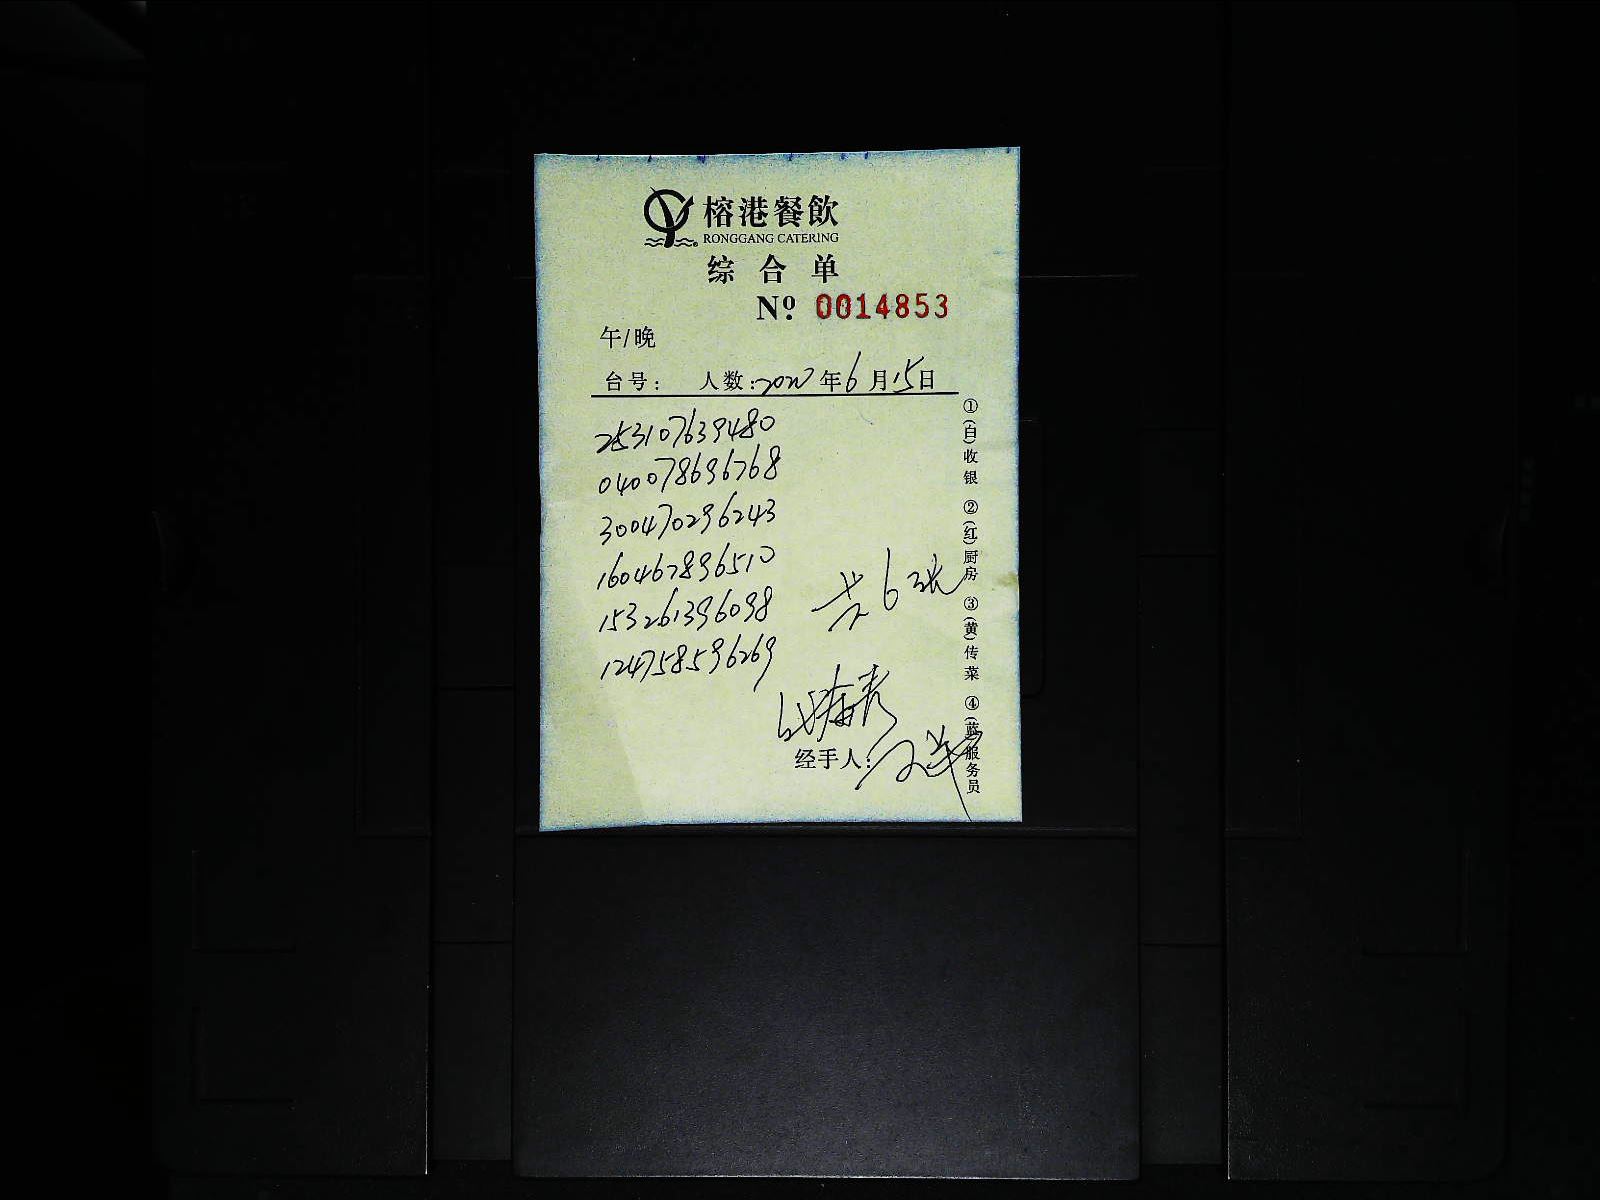 榕港餐飲
RONGGANG CATERING
综合单
Nº 0014853
午/晚
台号： 人数：2020年6月15日
253107639480
040078696768
300470296243
160467896510
153261396098
124758596269
共6张
经手人：
①(白)收银 ②(红)厨房 ③(黄)传菜 ④(蓝)服务员